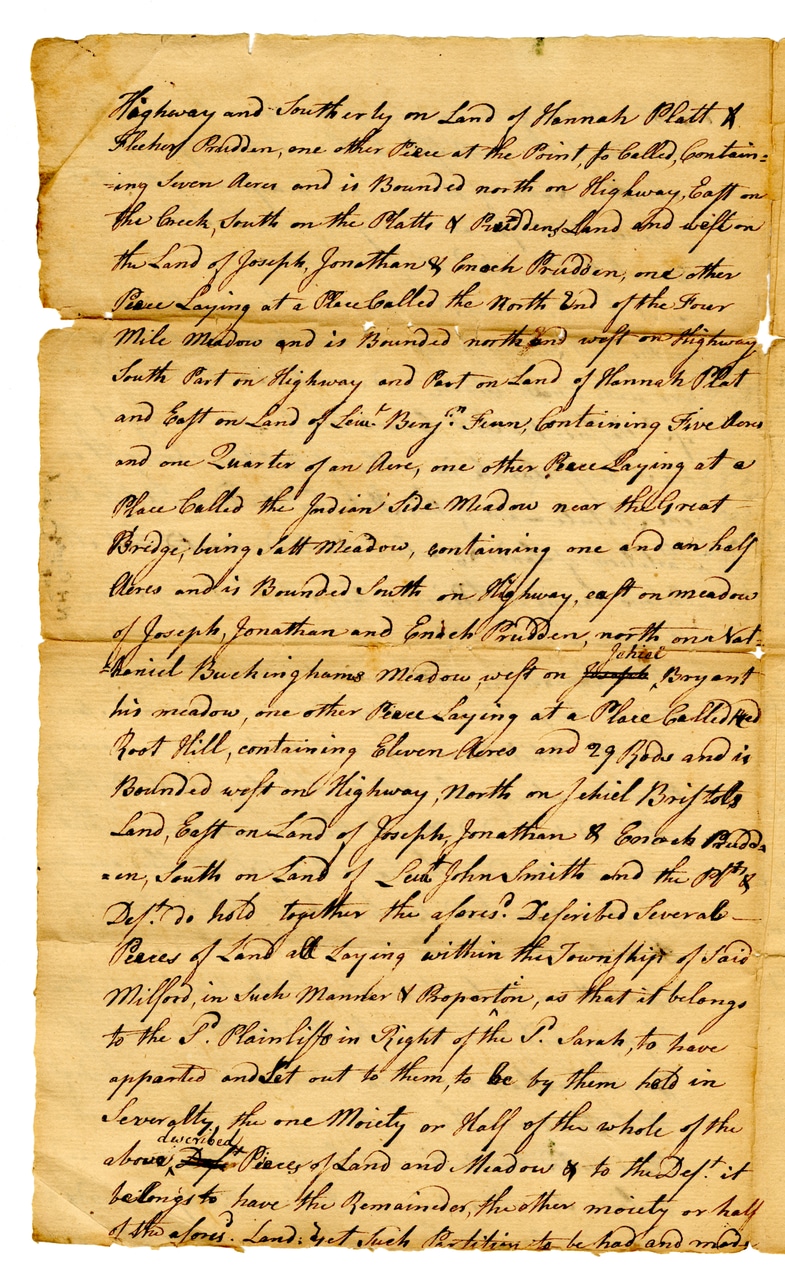 Highway and Southerly on Land of Hannah Platt &
Fletcher Prudden, one other Piece at the Point, so Called, Contain=
=ing Seven Acres and is Bounded north on Highway, East on
the Creek, South on the Platts & Pruddens Land and west on
the Land of Joseph, Jonathan & Enoch Prudden, one other
Piece Laying at a Place Called the North End of the Four
Mile Meadow and is Bounded north and west on Highway
South Part on Highway and Part on Land of Hannah Plat
and East on Land of Lieu.t Benj.n Fenn, Containing Five Acres
and one Quarter of an Acre, one other Piece Laying at a
Place Called the Indian Side Meadow near the Great
Bridge, being Salt Meadow, containing one and an half
Acres and is Bounded South on Highway, east on meadow
of Joseph, Jonathan and Enoch Prudden, north on Nat=
=haniel Buckinghams Meadow, west on Joseph Jehiel Bryant
his meadow, one other Piece Laying at a Place Called
Root Hill, containing Eleven Acres and 29 Rods and is
Bounded west on Highway, North on Jehiel Bristols
Land, East on Land of Joseph, Jonathan & Enoch Prudd=
=en, South on Land of Leiut John Smith and the Plts &
Def.t do hold together the afores.d Described Several
Pieces of Land all Laying within the Township of Said
Milford, in Such Manner & Proportion, as that it belongs
to the S.d Plaintiffs in Right of the S.d Sarah, to have
apparted and Set out to them, to be by them held in
Severalty, the one Moiety or Half of the whole of the
above described Def.t Pieces of Land and Meadow & to the Def.t it
belongs to have the Remainder, the other moiety or half
of the afores.d Land: Yet Such Partition to be had and made